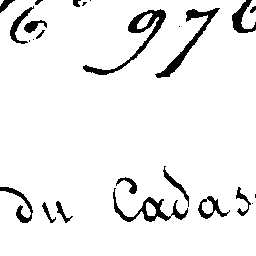 976
du Cadas